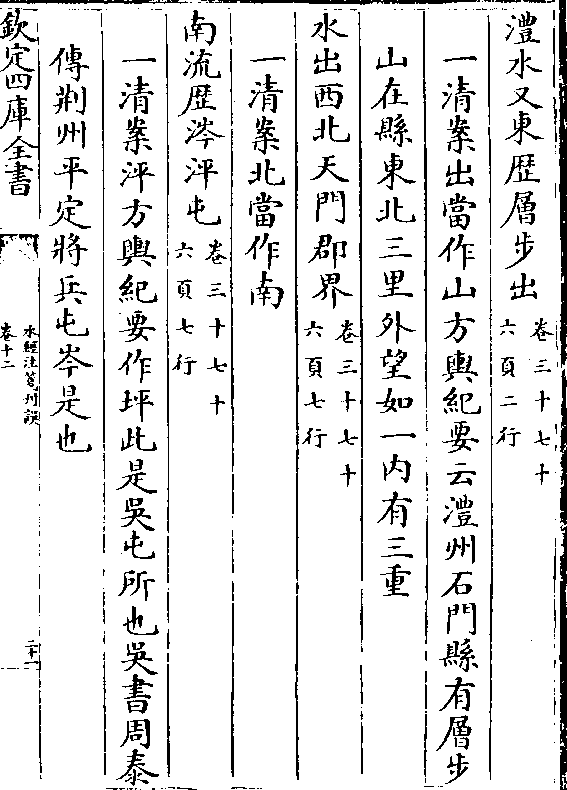 澧水又東歴層步出卷三十七十六頁二行
一清案出當作山方輿紀要云澧州石門縣有層步
山在縣東北三里外望如一内有三重
水出西北天門郡界卷三十七十六頁七行
一清案北當作南
南流歴涔泙屯卷三十七十六頁七行
一清案泙方輿紀要作坪此是吳屯所也吳書周泰
傳荆州平定將兵屯岑是也
欽定四庫全書
水經注箋刋誤
卷十二
二十一